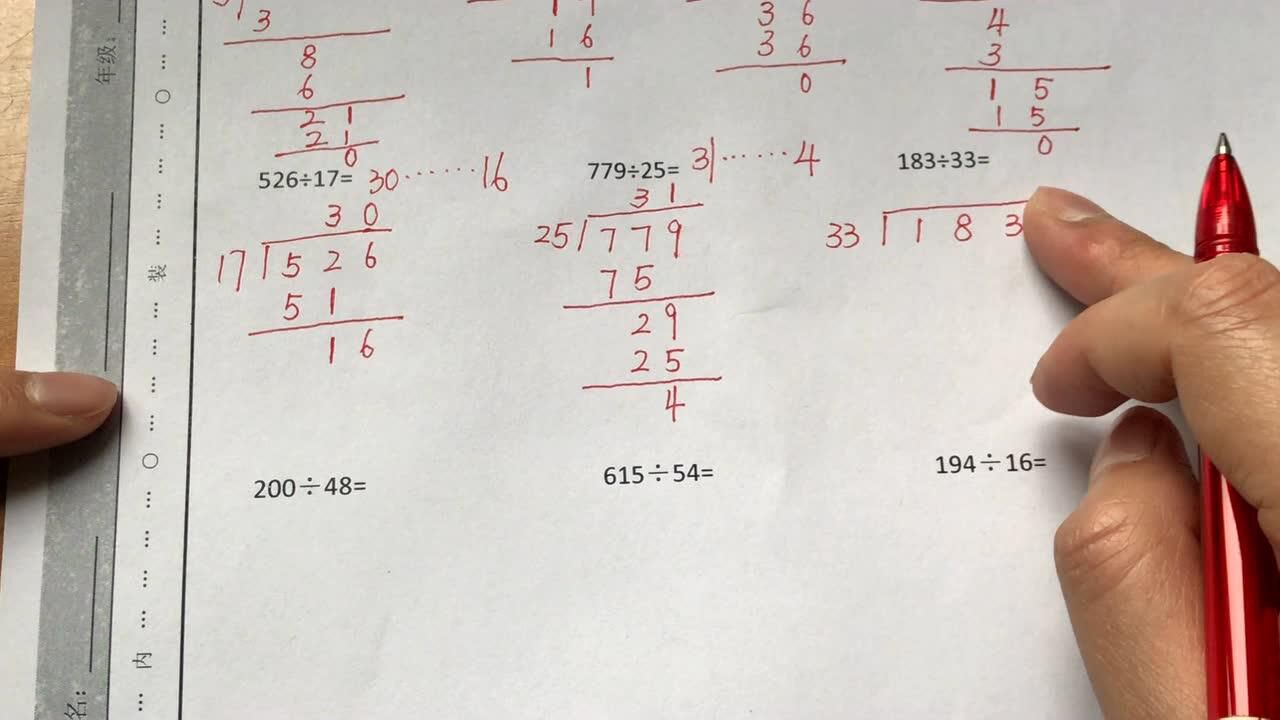 3
8
6
2 1
2 1
0
1 6
1
3 6
3 6
0
4
3
1 5
1 5
0
526÷17= 30……16
3 0
17 5 2 6
5 1
1 6
779÷25= 31……4
3 1
25 7 7 9
7 5
2 9
2 5
4
183÷33=
33 1 8 3
200÷48=
615÷54=
194÷16=
年级:
装
内
名: